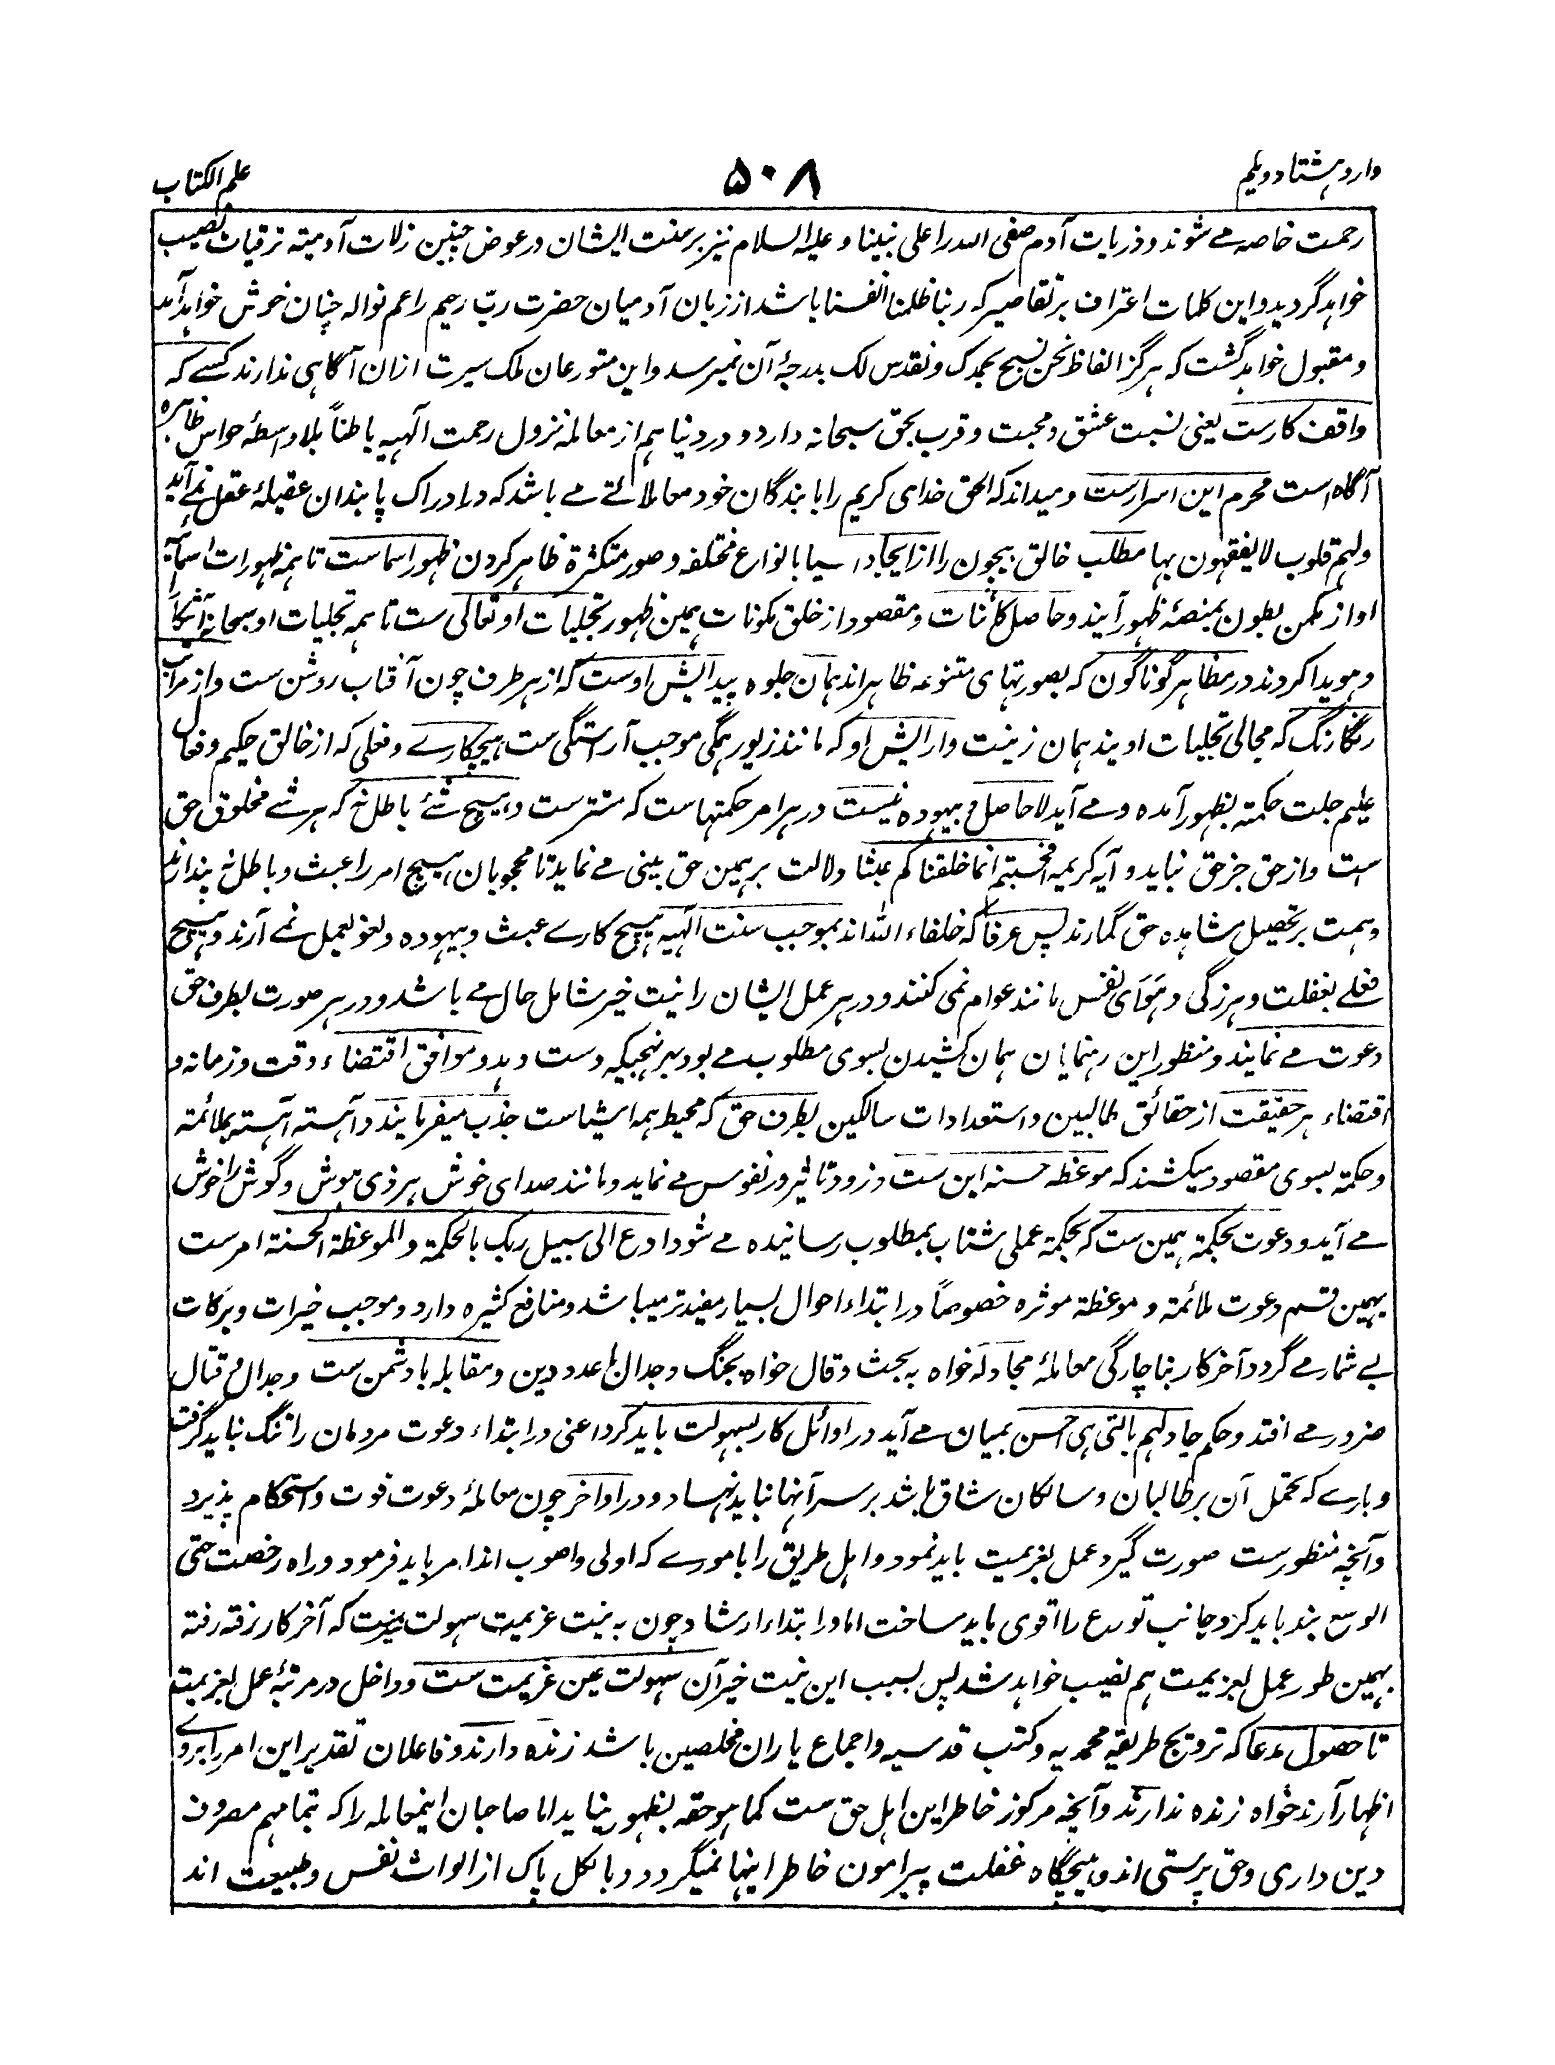 وارد هشتاد و یکم
۵۰۸
علم الکتاب
رحمت خاصه مے شوند و ذریات آدم صفی الله را علی نبینا و علیه السلام نیز بر سنت ایشان در عوض چنین زلات آدمیته ترقیات نصیب
خواهد گردید و این کلمات اعتراف بر تقاصیر که ربنا ظلمنا انفسنا باشد از زبان آدمیان حضرت ربّ رحیم را عم نواله چنان خوش خواهد آمد
و مقبول خواهد گشت که هرگز الفاظ نحن نسبح بحمدک و نقدس لک بدرجهٔ آن نمیرسد و این متورعان ملک سیرت ازان آگاهی ندارند کسے که
واقف کارست یعنی نسبت عشق و محبت و قرب بحق سبحانه دارد و در دنیا هم از معامله نزول رحمت الٰهیه باطناً بلا واسطهٔ حواس ظاهره
آگاه است محرم این اسرارست و میداند که الحق خدای کریم را با بندگان خود معاملاتے مے باشد که در ادراک پابندان عقیلهٔ عقل نمے آید
ولهم قلوب لا یفقهون بها مطلب خالق بیچون را از ایجاد اشیا بانواع مختلفه و صور متکثرة ظاهر کردن ظهور اسماست تا همه ظهورات اسمائیه
او از مکمن بطون بمنصهٔ ظهور آیند و حاصل کائنات و مقصود از خلق مکونات همین ظهور تجلیات او تعالی ست تا همه تجلیات او سبحانه آشکارا
و هویدا گردند در مظاهر گوناگون که بصورتهای متنوعه ظاهر اند همان جلوه پیدایش اوست که از هر طرف چون آفتاب روشن ست و از مرایاے
رنگارنگ که مجالی تجلیات اویند همان زینت و آرایش او که مانند زیور همگی موجب آراستگی ست هیچکارے و فعلی که از خالق حکیم و فعال
علیم جلت حکمته بظهور آمده و مے آید لا حاصل و بیهوده نیست در هر امر حکمتهاست که مستترست و هیچ شئے باطل نه که هر شے مخلوق حق
ست و از حق جز حق نیاید و آیه کریمه افحسبتم انما خلقناکم عبثا دلالت بر همین حق بینی مے نماید تا محجوبان هیچ امر را عبث و باطل نه پندارند
و همت بر تحصیل مشاهده حق گمارند پس عرفا که خلفاء الله اند بموجب سنت الٰهیه هیچ کارے عبث و بیهوده و لغو بعمل نمے آرند و هیچ
فعلے بغفلت و هرزگی و هوای نفس مانند عوام نمی کنند و در هر عمل ایشان را نیت خیر شامل حال مے باشد و در هر صورت بطرف حق
دعوت مے نمایند و منظور این رهنمایان همان کشیدن بسوی مطلوب مے بود بهر نهجیکه دست دهد و موافق اقتضاء وقت و زمانه و
اقتضاء هر حقیقت از حقائق طالبین و استعدادات سالکین بطرف حق که محیط همه اشیاست جذب میفرمایند و آهسته آهسته بملائمته
و حکمة بسوی مقصود میکشند که موعظه حسنه این ست و زود تاثیر در نفوس مے نماید و مانند صدای خوش هر ذی هوش و گوش را خوش
مے آید و دعوت بحکمة همین ست که بحکمة عملی شتاب بمطلوب رسانیده مے شود ادع الی سبیل ربک بالحکمة و الموعظة الحسنة امر ست
بهمین قسم دعوت ملائمة و موعظة موثره خصوصاً در ابتداء احوال بسیار مفیدتر میباشد و منافع کثیره دارد و موجب خیرات و برکات
بے شمار مے گردد آخر کار بناچارگی معاملهٔ مجادله خواه به بحث و قال خواه بجنگ و جدال با عدو دین و مقابله با دشمن ست و جدال و قتال
ضرور مے افتد و حکم جادلهم بالتی هی احسن بمیان مے آید در اوائل کار بسهولت باید کرد اعنی در ابتداء دعوت مردمان را تنگ نباید گرفت
و بارے که تحمل آن بر طالبان و سالکان شاق باشد بر سر آنها نباید نهاد و در اواخر چون معاملهٔ دعوت قوت و استحکام پذیرد
و آنچه منظورست صورت گیرد عمل بعزیمت باید نمود و اهل طریق را بامورے که اولی و اصوب اند امر باید فرمود و راه رخصت حتی
الوسع بند باید کرد و جانب تورع را اقوی باید ساخت اما در ابتداء ارشاد چون به نیت عزیمت سهولت نیست که آخر کار رفته رفته
بهمین طور عمل بعزیمت هم نصیب خواهد شد پس بسبب این نیت خیر آن سهولت عین عزیمت ست و داخل در مرتبهٔ عمل بعزیمت
تا حصول مدعا که ترویج طریقه محمدیه و کتب قدسیه و اجماع یاران مخلصین باشد زنده دارند و فاعلان تقدیر این امر را بروے
اظهار آرند خواه زنده ندارند و آنچه مرکوز خاطر این اهل حق ست کما هو حقه بظهور نیاید اما صاحبان اینمعامله را که بتمامهم مصروف
دین داری و حق پرستی اند و هیچگاه غفلت پیرامون خاطر اینها نمیگردد و بالکل پاک از الواث نفس و طبیعت اند